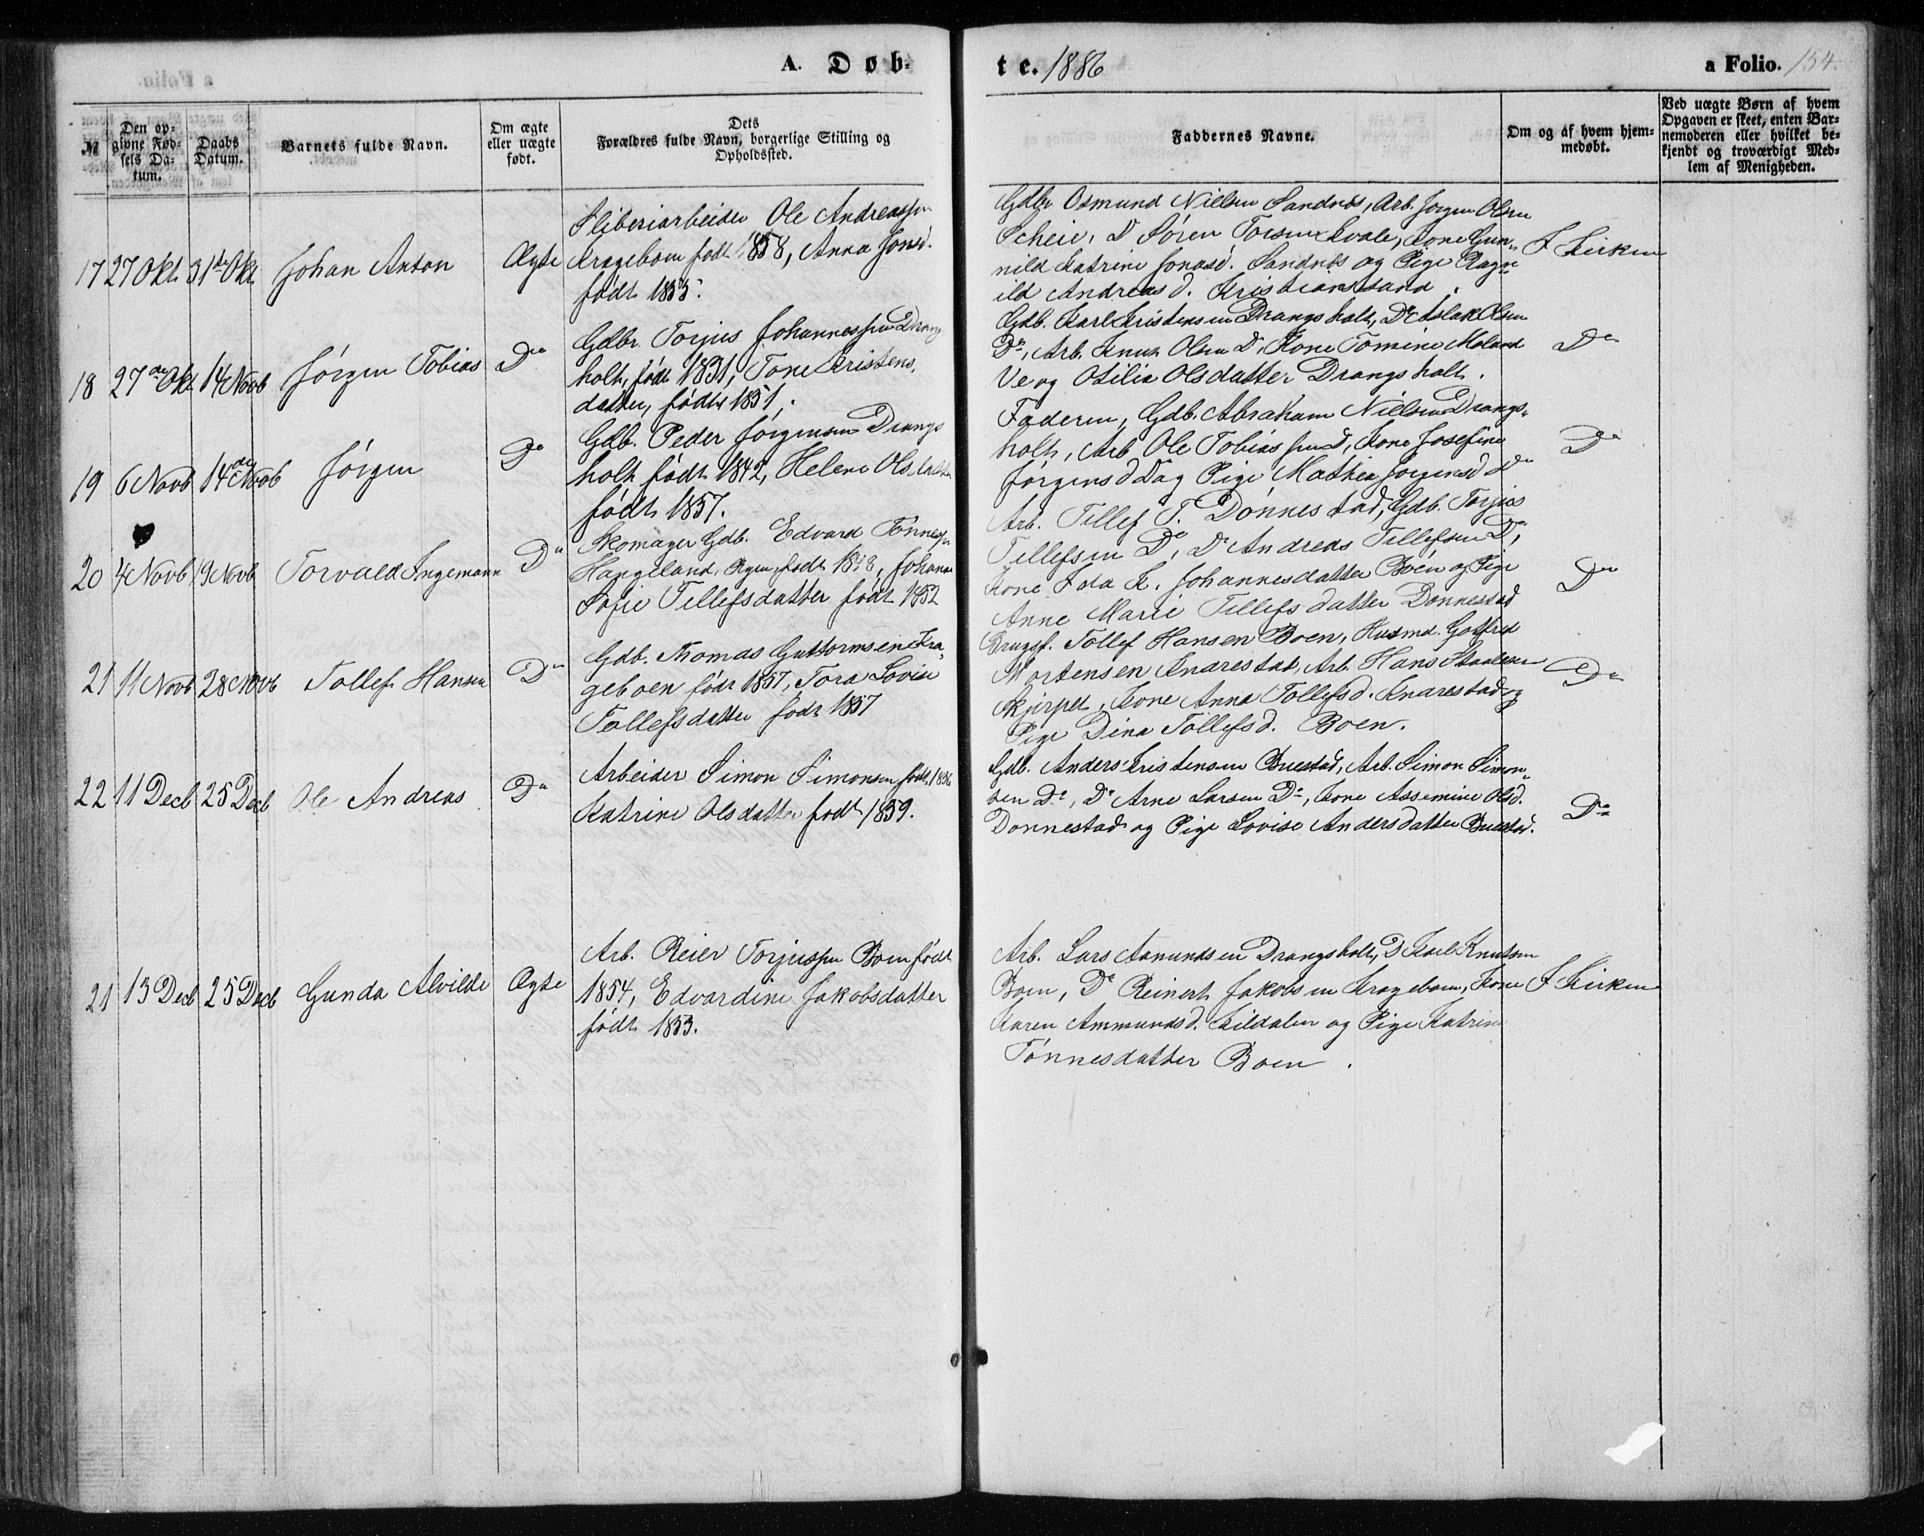 A. Døb-
te. 1886
a Folio. 154.
№
Den op-
givne Fød-
sels Da-
tum.
Daabs
Datum.
Barnets fulde Navn.
Om ægte
eller uægte
født.
Dets
Forældres fulde Navn, borgerlige Stilling og
Opholdssted.
Faddernes Navne.
Om og af hvem hjem-
medøbt.
Ved uægte Børn af hvem
Opgaven er skeet, enten Bar-
nemoderen eller hvilket be-
kjendt og troværdigt Med-
lem af Menigheden.
17 27 Okt 31te Okt Johan Anton Ægte
Sliberiarbeider Ole Andreassen
Krageboen født 1858, Anna Jonsd.
født 1855.
Gdbr Osmund Nielsen Sandnes, Arb. Jørgen Olsen
Scheie, Do Søren Torsen Kvale, Kone Gun-
nild Katrine Jonasd. Sandnes og Pige Ragn-
ild Andreasd. Kristianssand.
I Kirken
18 27de Okt 14 Novb Jørgen Tobias Do
Gdbr Torjus Johannessen Drangs
holt, født 1831, Tone Kristens
datter, født 1851.
Gdb. Karl Kristensen Drangsholt, Do Aslak Olsen
Do, Arb. Knut Olsen Do, Kone Tomine Moland
Ve og Otilia Olsdatter Drangsholt.
Do
19 6 Novb 14de Novb Jørgen Do
Gdb. Peder Jørgensen Drangs
holt født 1842, Helene Olsdatter
født 1857.
Faderen, Gdb. Abraham Nielsen Drangs-
holt, Arb. Ole Tobiassen Do, Kone Josefine
Jørgensd Do og Pige Mathea Jørgensd Do
Do
20 4 Novb 19 Novb Torvald Ingemann Do
Skomager Gdb. Edvard Tønnessen
Haugeland, født 1848, Johanne
Sofie Tellefsdatter født 1852
Arb. Tellef T. Dønnestad, Gdb. Torjus
Tellefsen Do, Do Andreas Tellefsen Do,
Kone Ida K. Johannesdatter Boen og Pige
Anne Marie Tellefsdatter Dønnestad
Do
21 11 Novb 28 Novb Tollef Hansen Do
Gdb. Thomas Guttormsen Kra-
geboen født 1857, Tora Lovise
Tollefsdatter født 1857
Brugsf. Tollef Hansen Boen, Husmd. Gotfred
Mortensen Knarestad, Arb. Hans Staalesen
Skjerpet, Kone Anna Tollefsd. Knarestad og
Pige Dina Tollefsd. Boen.
Do
22 11 Decb 25 Decb Ole Andreas Do
Arbeider Simon Simonsen født 1836
Katrine Olsdatter født 1859.
Gdb. Anders Kristensen Buestad, Arb. Simon Simon-
sen Do, Do Arne Larsen Do, Kone Assemine Olsd.
Donnestad og Pige Lovise Andersdatter Buestad.
Do
21 13 Decb 25 Decb Gunda Alvilde Ægte
Arb. Reier Torjussen Boen født
1854, Edvardine Jakobsdatter
født 1853.
Arb. Lars Aanundsen Drangsholt, Do Karl Knutsen
Boen, Do Reinert Jakobsen Krageboen, Kone
Karen Ammundsd. Kildalen og Pige Katrine
Tønnesdatter Boen.
I Kirken